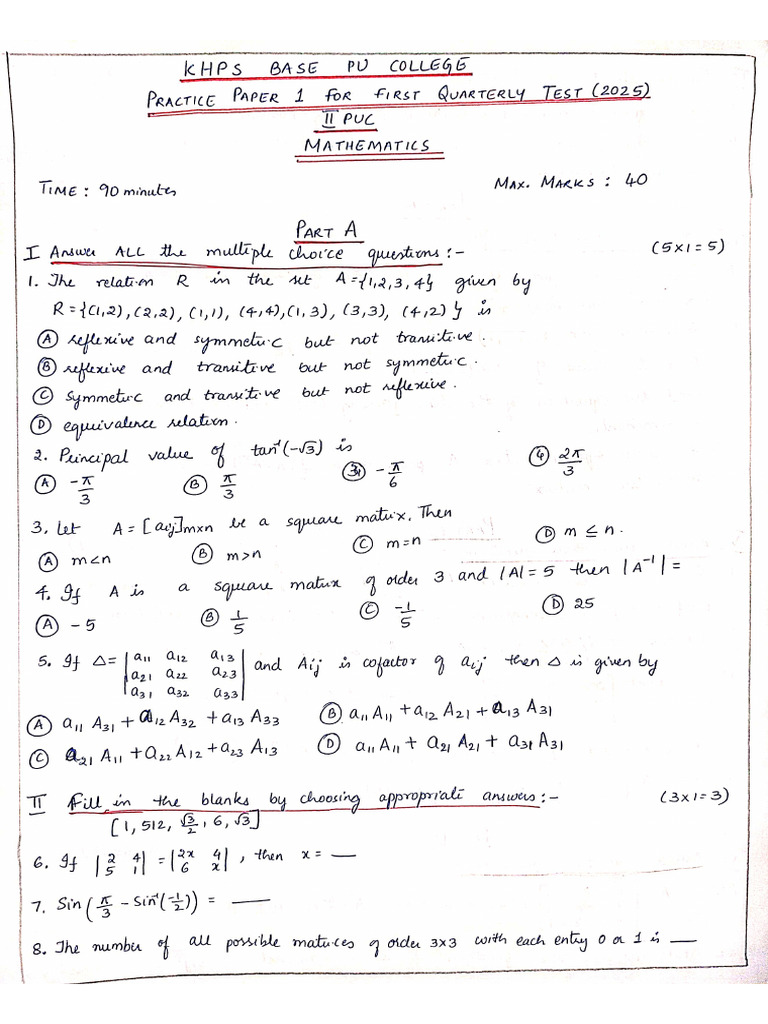 KHPS BASE PU COLLEGE
PRACTICE PAPER 1 FOR FIRST QUARTERLY TEST (2025)
II PUC
MATHEMATICS
TIME : 90 minutes MAX. MARKS : 40
PART A
I Answer ALL the multiple choice questions :- (5x1=5)
1. The relation R in the set A={1,2,3,4} given by
R={(1,2),(2,2),(1,1),(4,4),(1,3),(3,3),(4,2)} is
Ⓐ reflexive and symmetric but not transitive.
Ⓑ reflexive and transitive but not symmetric.
Ⓒ Symmetric and transitive but not reflexive.
Ⓓ equivalence relation.
2. Principal value of tan⁻¹(-√3) is
Ⓐ -π/3 Ⓑ π/3 ③ -π/6 ④ 2π/3
3. Let A = [aij]mxn be a square matrix. Then
Ⓐ m<n Ⓑ m>n Ⓒ m=n Ⓓ m ≤ n.
4. If A is a square matrix of order 3 and |A| = 5 then |A⁻¹| =
Ⓐ -5 Ⓑ 1/5 Ⓒ -1/5 Ⓓ 25
5. If Δ= |a11 a12 a13 and Aij is cofactor of aij then Δ is given by
a21 a22 a23
a31 a32 a33|
Ⓐ a11 A31 + a12 A32 + a13 A33 Ⓑ a11 A11 + a12 A21 + a13 A31
Ⓒ a21 A11 + a22 A12 + a23 A13 Ⓓ a11 A11 + a21 A21 + a31 A31
II Fill in the blanks by choosing appropriate answers :- (3x1=3)
[1, 512, √3/2, 6, √3]
6. If |2 4; 5 1| = |2x 4; 6 x|, then x = __
7. Sin(π/3 - Sin⁻¹(-1/2)) = __
8. The number of all possible matrices of order 3x3 with each entry 0 or 1 is __